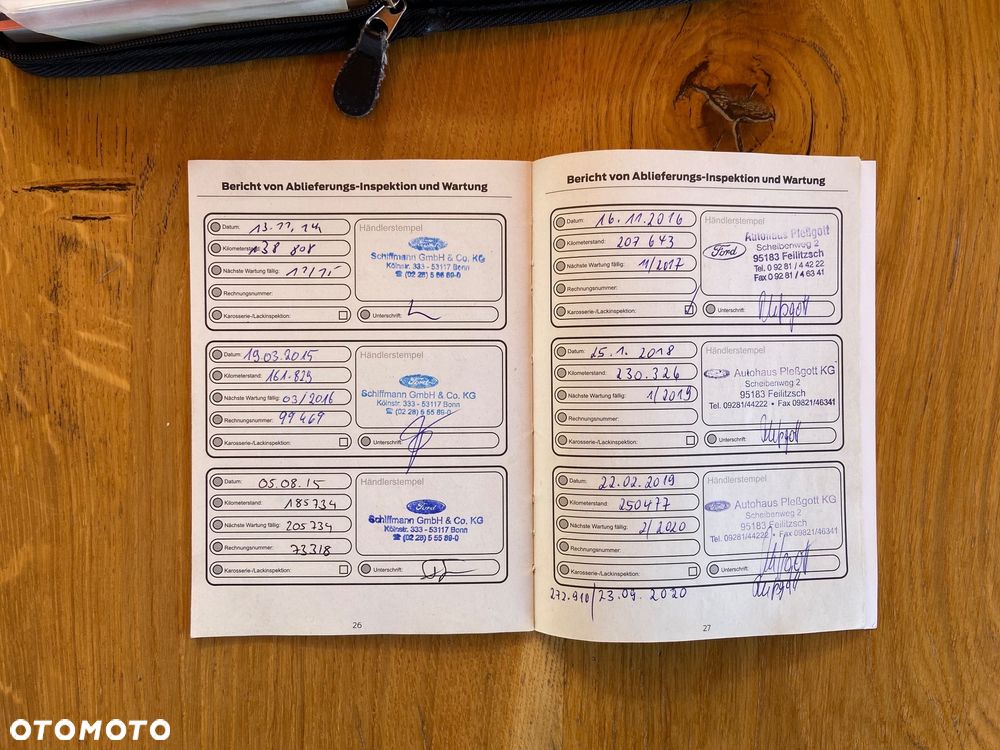 Bericht von Ablieferungs-Inspektion und Wartung
Datum: 13.11.14
Kilometerstand: 138 808
Nächste Wartung fällig: 11/15
Rechnungsnummer:
Karosserie-/Lackinspektion:
Händlerstempel
Ford
Schiffmann GmbH & Co. KG
Kölnstr. 333 - 53117 Bonn
☎ (02 28) 5 55 89-0
Unterschrift:
Datum: 19.03.2015
Kilometerstand: 161.829
Nächste Wartung fällig: 03/2016
Rechnungsnummer: 99469
Karosserie-/Lackinspektion:
Händlerstempel
Ford
Schiffmann GmbH & Co. KG
Kölnstr. 333 - 53117 Bonn
☎ (02 28) 5 55 89-0
Unterschrift:
Datum: 05.08.15
Kilometerstand: 185734
Nächste Wartung fällig: 205734
Rechnungsnummer: 73318
Karosserie-/Lackinspektion:
Händlerstempel
Ford
Schiffmann GmbH & Co. KG
Kölnstr. 333 - 53117 Bonn
☎ (02 28) 5 55 89-0
Unterschrift:
26
Bericht von Ablieferungs-Inspektion und Wartung
Datum: 16.11.2016
Kilometerstand: 207 643
Nächste Wartung fällig: 1/2017
Rechnungsnummer:
Karosserie-/Lackinspektion:
Händlerstempel
Ford
Autohaus Pleßgott
Scheibenweg 2
95183 Feilitzsch
Tel. 0 92 81 / 4 42 22
Fax 0 92 81 / 4 63 41
Unterschrift: Pleßgott
Datum: 25.1.2018
Kilometerstand: 230.326
Nächste Wartung fällig: 1/2019
Rechnungsnummer:
Karosserie-/Lackinspektion:
Händlerstempel
Autohaus Pleßgott KG
Scheibenweg 2
95183 Feilitzsch
Tel. 09281/44222 • Fax 09821/46341
Unterschrift: Pleßgott
Datum: 22.02.2019
Kilometerstand: 250477
Nächste Wartung fällig: 2/2020
Rechnungsnummer:
Karosserie-/Lackinspektion:
Händlerstempel
Autohaus Pleßgott KG
Scheibenweg 2
95183 Feilitzsch
Tel. 09281/44222 • Fax 09821/46341
Unterschrift: Pleßgott
272.910/23.09.2020 Pleßgott
27
OTOMOTO